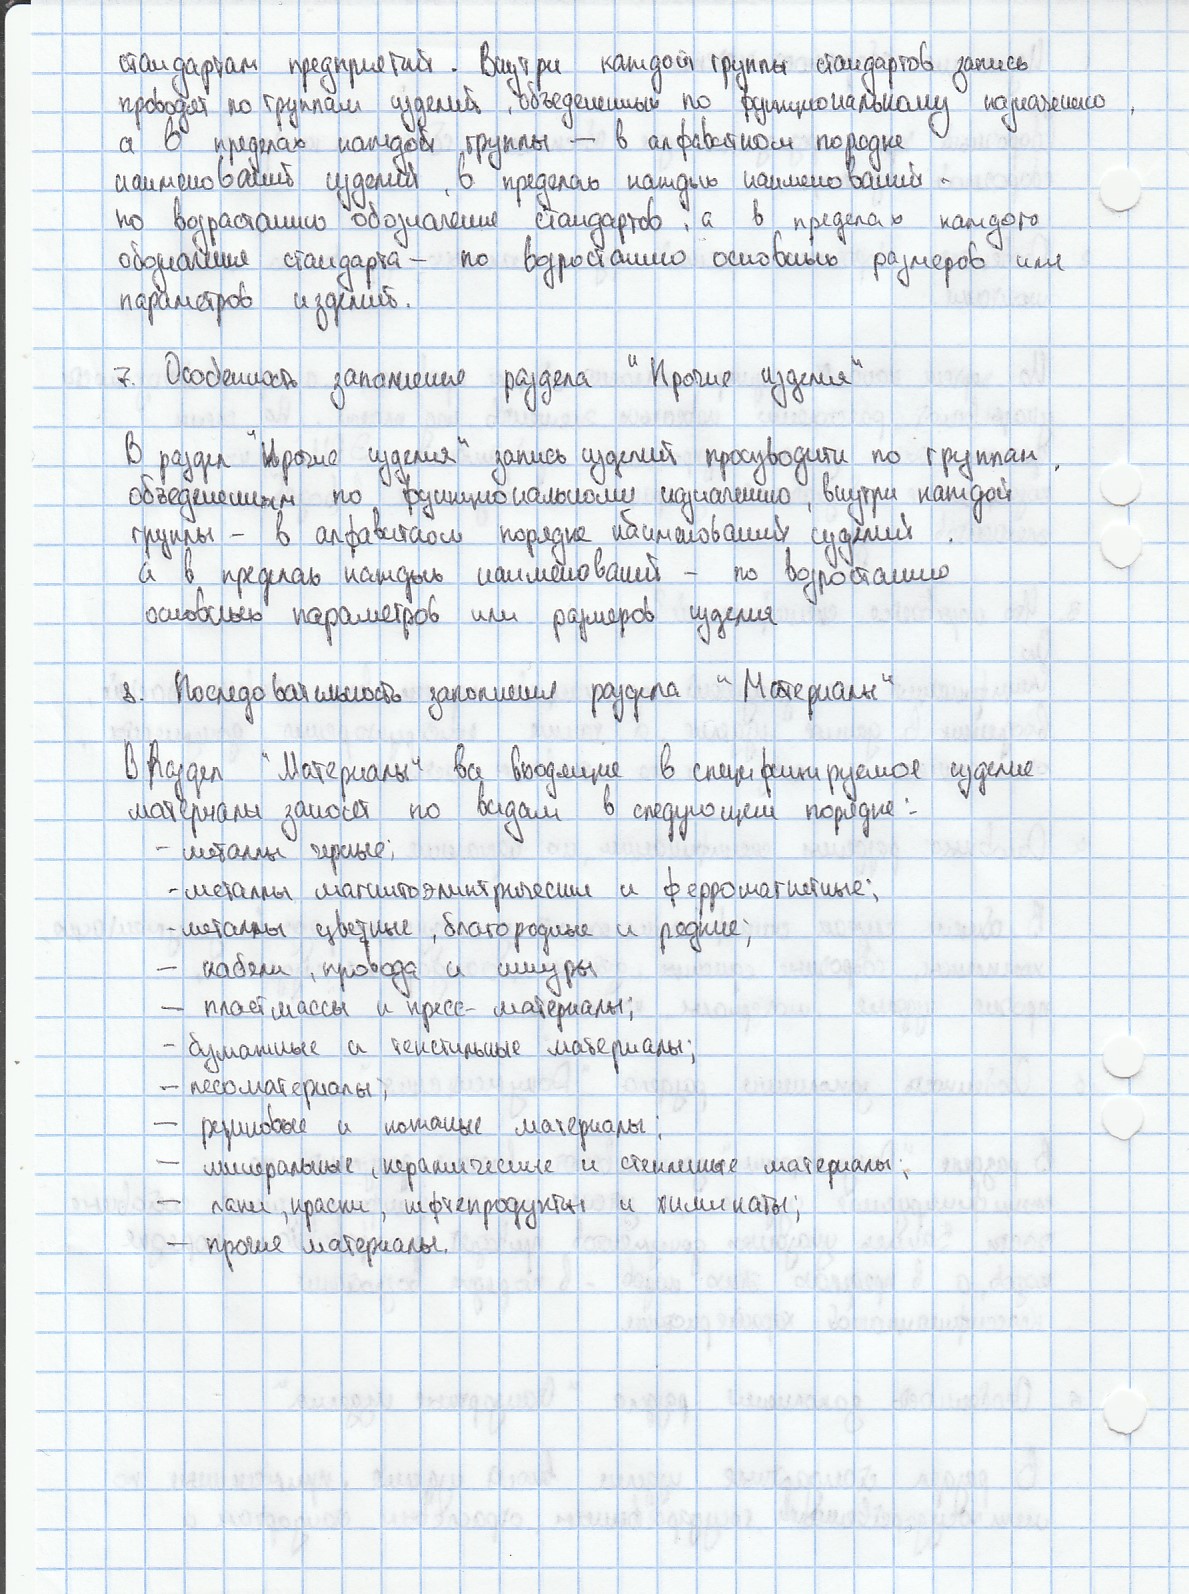 стандартам предприятий. Внутри каждой группы стандартов запись
проводят по группам изделий, объеденённых по функциональному назначению,
а в пределах каждой группы — в алфавитном порядке
наименований изделий, в пределах каждых наименований -
по возрастанию обозначение стандартов, а в пределах каждого
обозначения стандарта — по возростанию основных размеров или
параметров изделий.
7. Особенность заполнение раздела "Прочие изделия"
В раздел "Прочие изделия" запись изделий производити по группам,
объеденённым по функциональному назначению, внутри каждой
группы — в алфавитном порядке наименований изделий.
а в пределах каждых наименований — по возростанию
основных параметров или размеров изделия
8. Последовательность заполнения раздела "Материалы"
В Раздел "Материалы" все входящие в специфицируемое изделие
материалы заносят по видам в следующем порядке:-
- металлы черные;
- металлы магнитоэлектрические и ферромагнетные;
- металлы цветные, благородные и редкие;
— кабели, провода и шнуры
— пластмассы и пресс-материалы;
- бумажные и текстильные материалы;
— лесоматериалы;
— резиновые и кожаные материалы;
— минеральные, керамические и стеклянные материалы;
— лаки, краски, нефтепродукты и химикаты;
— прочие материалы.